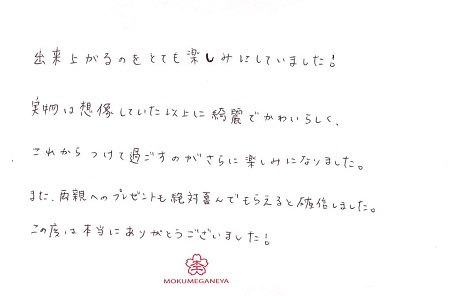 出来上がるのをとても楽しみにしていました!
実物は想像していた以上に綺麗でかわいらしく、
これからつけて過ごすのがさらに楽しみになりました。
また、両親へのプレゼントも絶対喜んでもらえると確信しました。
この度は本当にありがとうございました!
MOKUMEGANEYA